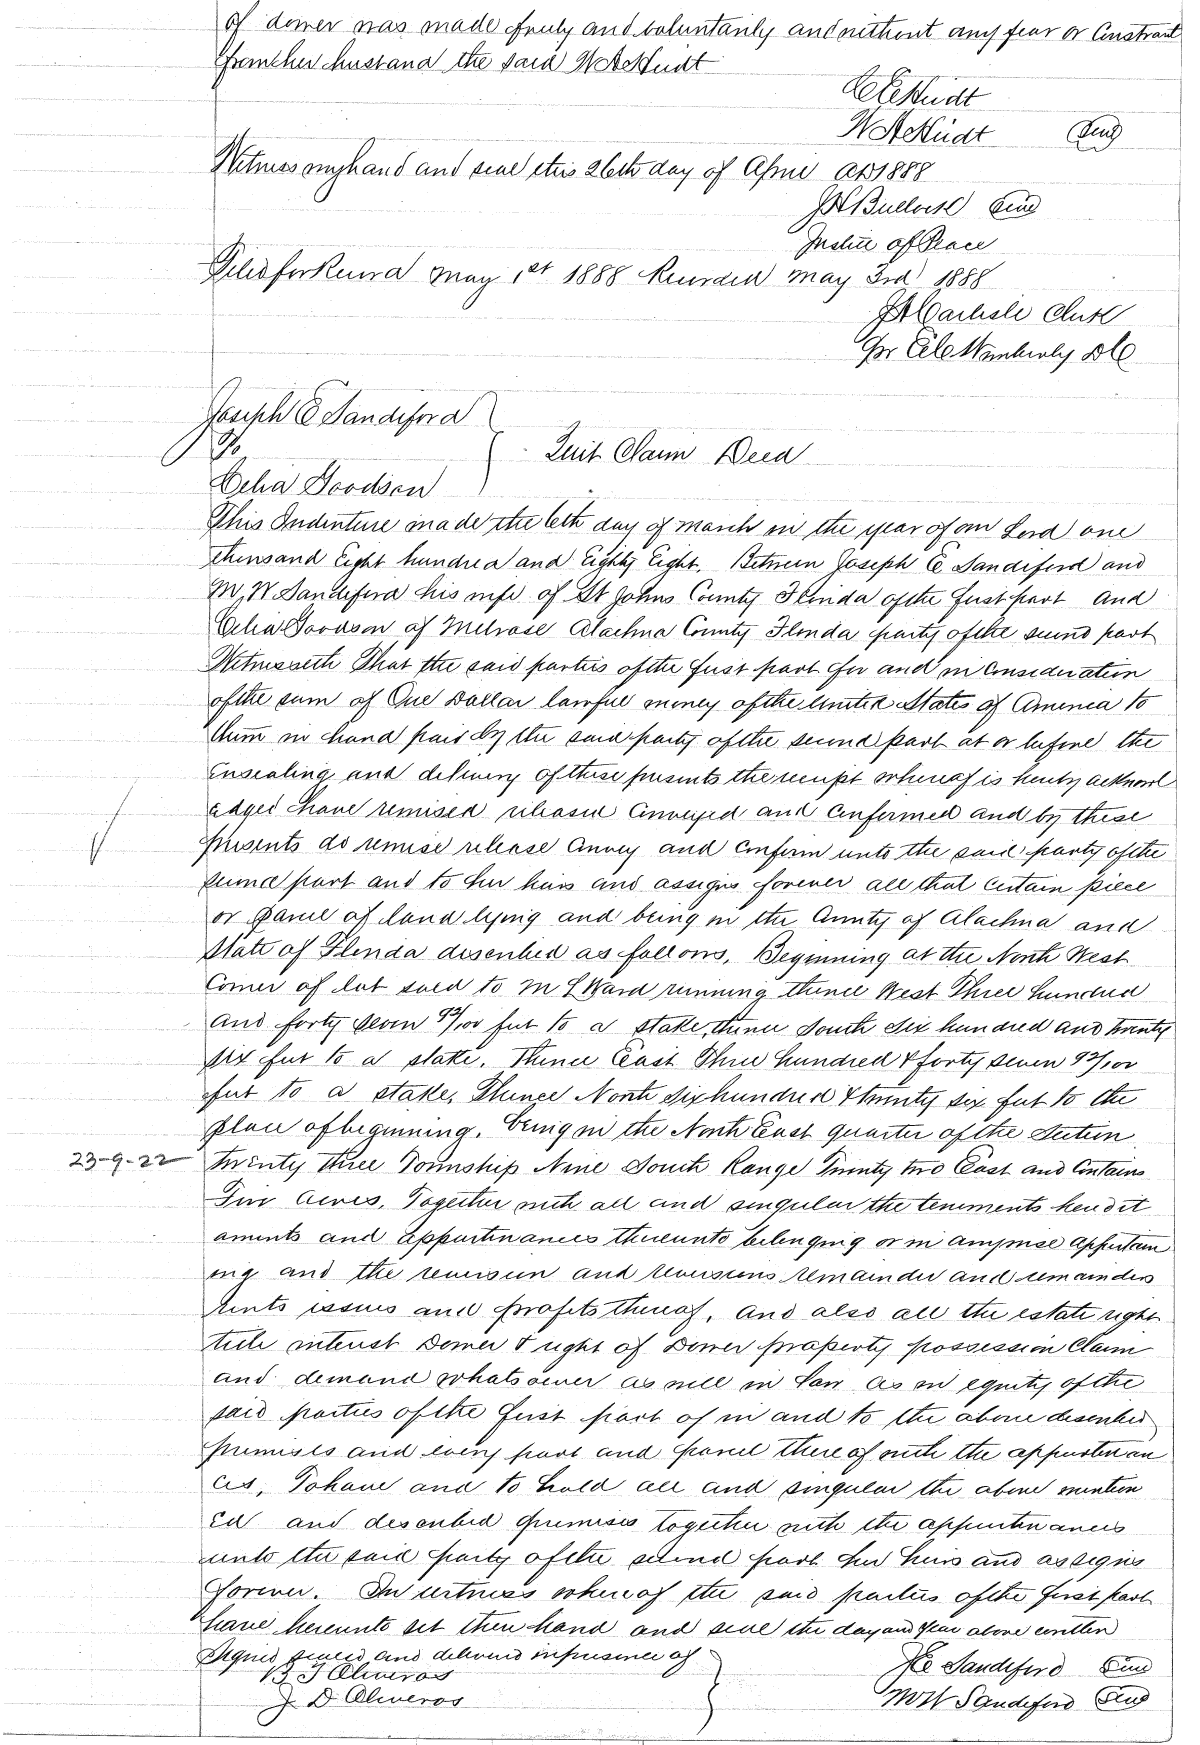 of dower was made freely and voluntarily and without any fear or Constraint
from her husband the said
Witness my hand and seal this 26th day of April AD 1888
Seal
Justice of Peace
Filed for Record May 1st 1888 Recorded May 3rd 1888
Clerk
Pr DC
Joseph E Sandiford
To
Quit Claim Deed
Celia Goodson
This Indenture made the 6th day of March in the year of our Lord one
thousand Eight hundred and Eighty Eight. Between Joseph E Sandiford and
M. W Sandiford his wife of St Johns County Florida of the first part and
Celia Goodson of Melrose Alachua County Florida party of the second part
Witnesseth That the said parties of the first part for and in Consideration
of the sum of One Dollar lawful money of the United States of America to
them in hand paid by the said party of the second part at or before the
ensealing and delivery of these presents the receipt whereof is hereby acknowl
edged have remised released Conveyed and Confirmed and by these
presents do remise release Convey and Confirm unto the said party of the
second part and to her heirs and assigns forever all that Certain piece
or parcel of land lying and being in the County of Alachua and
State of Florida described as follows, Beginning at the North West
Corner of lot sold to M L Ward running thence West Three hundred
and forty seven 93/100 feet to a stake, thence South Six hundred and twenty
six feet to a stake. Thence East Three hundred & forty seven 93/100
feet to a stake, Thence North Six hundred & twenty six feet to the
place of beginning. being in the North East quarter of the Section
23-9-22 twenty three Township Nine South Range Twenty two East and Contains
Five Acres. Together with all and singular the tenements heredit
aments and appurtinances thereunto belonging or in anywise appertain
ing and the reversion and reversions remainder and remainders
rents issues and profits thereof, and also all the estate right
title interest Dower & right of Dower property possession Claim
and demand whatsoever as well in Law as in equity of the
said parties of the first part of in and to the above described
premises and every part and parcel there of with the appurtenan
ces, To have and to hold all and singular the above mention
ed and described premises together with the appurtinances
unto the said party of the second part her heirs and assigns
forever. In witness whereof the said parties of the first part
have hereunto set their hand and seal the day and year above written
Signed sealed and delivered in presence of
B J Oliveros
J E Sandiford Seal
J. D. Oliveros
M W Sandiford Seal